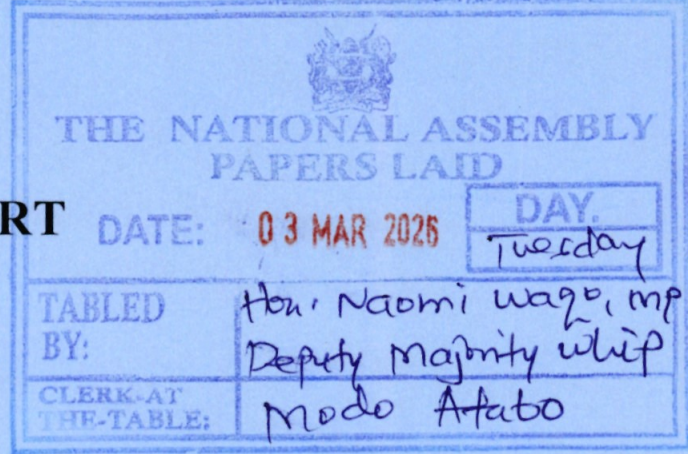 THE NATIONAL ASSEMBLY
PAPERS LAID
RT
DATE: 03 MAR 2026
DAY.
Tuesday
TABLED BY:
Hon. Naomi Waqo, MP
Deputy Majority Whip
CLERK-AT THE-TABLE:
Modo Atabo